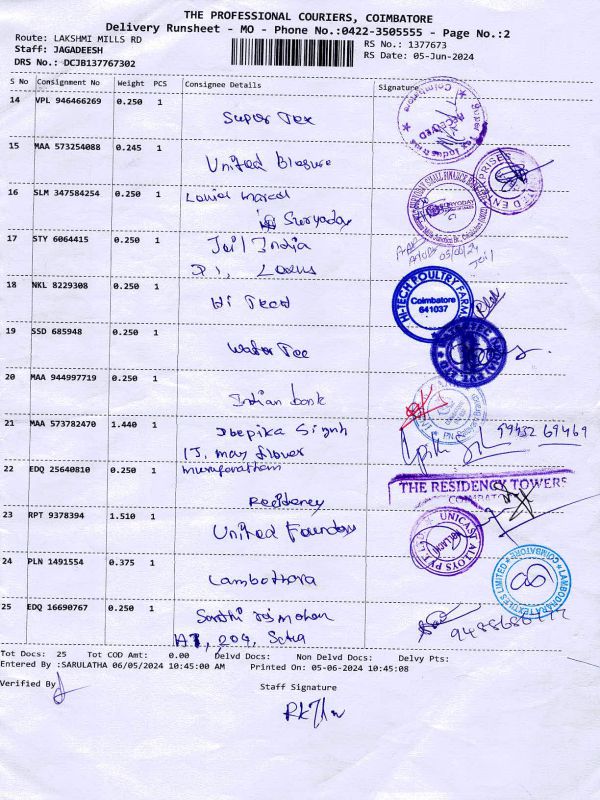 THE PROFESSIONAL COURIERS, COIMBATORE
Delivery Runsheet - MO - Phone No.:0422-3505555 - Page No.:2
Route: LAKSHMI MILLS RD
RS No.: 1377673
Staff: JAGADEESH
RS Date: 05-Jun-2024
DRS No.: DCJB137767302
S No Consignment No Weight PCS Consignee Details Signature
14 VPL 946466269 0.250 1
Super Tex
15 MAA 573254088 0.245 1
United
16 SLM 347584254 0.250 1
Suryoday
17 STY 6064415 0.250 1
Jail India
18 NKL 8229308 0.250 1
Hi Tech
HI-TECH POULTRY FARM
Coimbatore
641037
19 SSD 685948 0.250 1
Water Tec
20 MAA 944997719 0.250 1
Indian bank
21 MAA 573782470 1.440 1
Deepika Singh
99432 69469
17, may flower
22 EDQ 25640810 0.250 1
Residency
THE RESIDENCY TOWERS
COIMBATO
23 RPT 9378394 1.510 1
United Foundry
UNICAST ALLOYS PVT L
24 PLN 1491554 0.375 1
LAMBODHRA TEXTILES LIMITED COIMBATORE
25 EDQ 16690767 0.250 1
A7, 209, Setua
Tot Docs: 25 Tot COD Amt: 0.00 Delvd Docs: Non Delvd Docs: Delvy Pts:
Entered By :SARULATHA 06/05/2024 10:45:00 AM Printed On: 05-06-2024 10:45:08
Verified By
Staff Signature